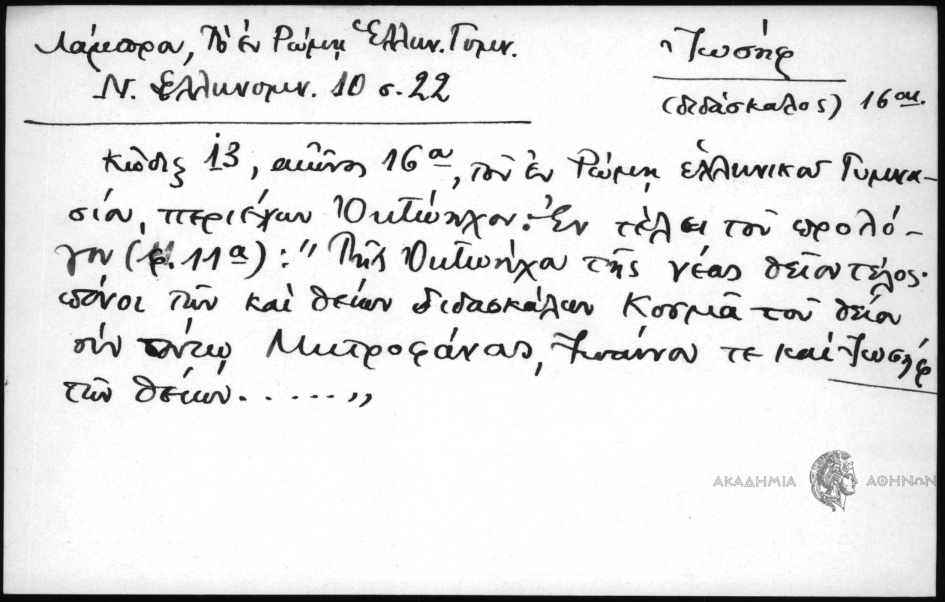 Λάμπρου, Τὸ ἐν Ρώμῃ Ἑλλην. Γυμν.
Ν. Ἑλληνομν. 10 σ. 22
Ἰωσήφ
(διδάσκαλος) 16 αι.
Κῶδιξ 13, αἰῶνος 16ου, τοῦ ἐν Ρώμῃ ἑλληνικοῦ Γυμνα-
σίου, περιέχων Ὀκτώηχον. Ἐν τέλει τοῦ προλό-
γου (φ. 11α): "Τῆς Ὀκτωήχου τῆς νέας θεῖον τέλος.
πόνοι τῶν καὶ θείων διδασκάλων Κοσμᾶ τοῦ θείου
σὺν τούτῳ Μητροφάνους, Ἰωάννου τε καὶ Ἰωσήφ
τῶν θείων. . . . . . "
ΑΚΑΔΗΜΙΑ ΑΘΗΝΩΝ